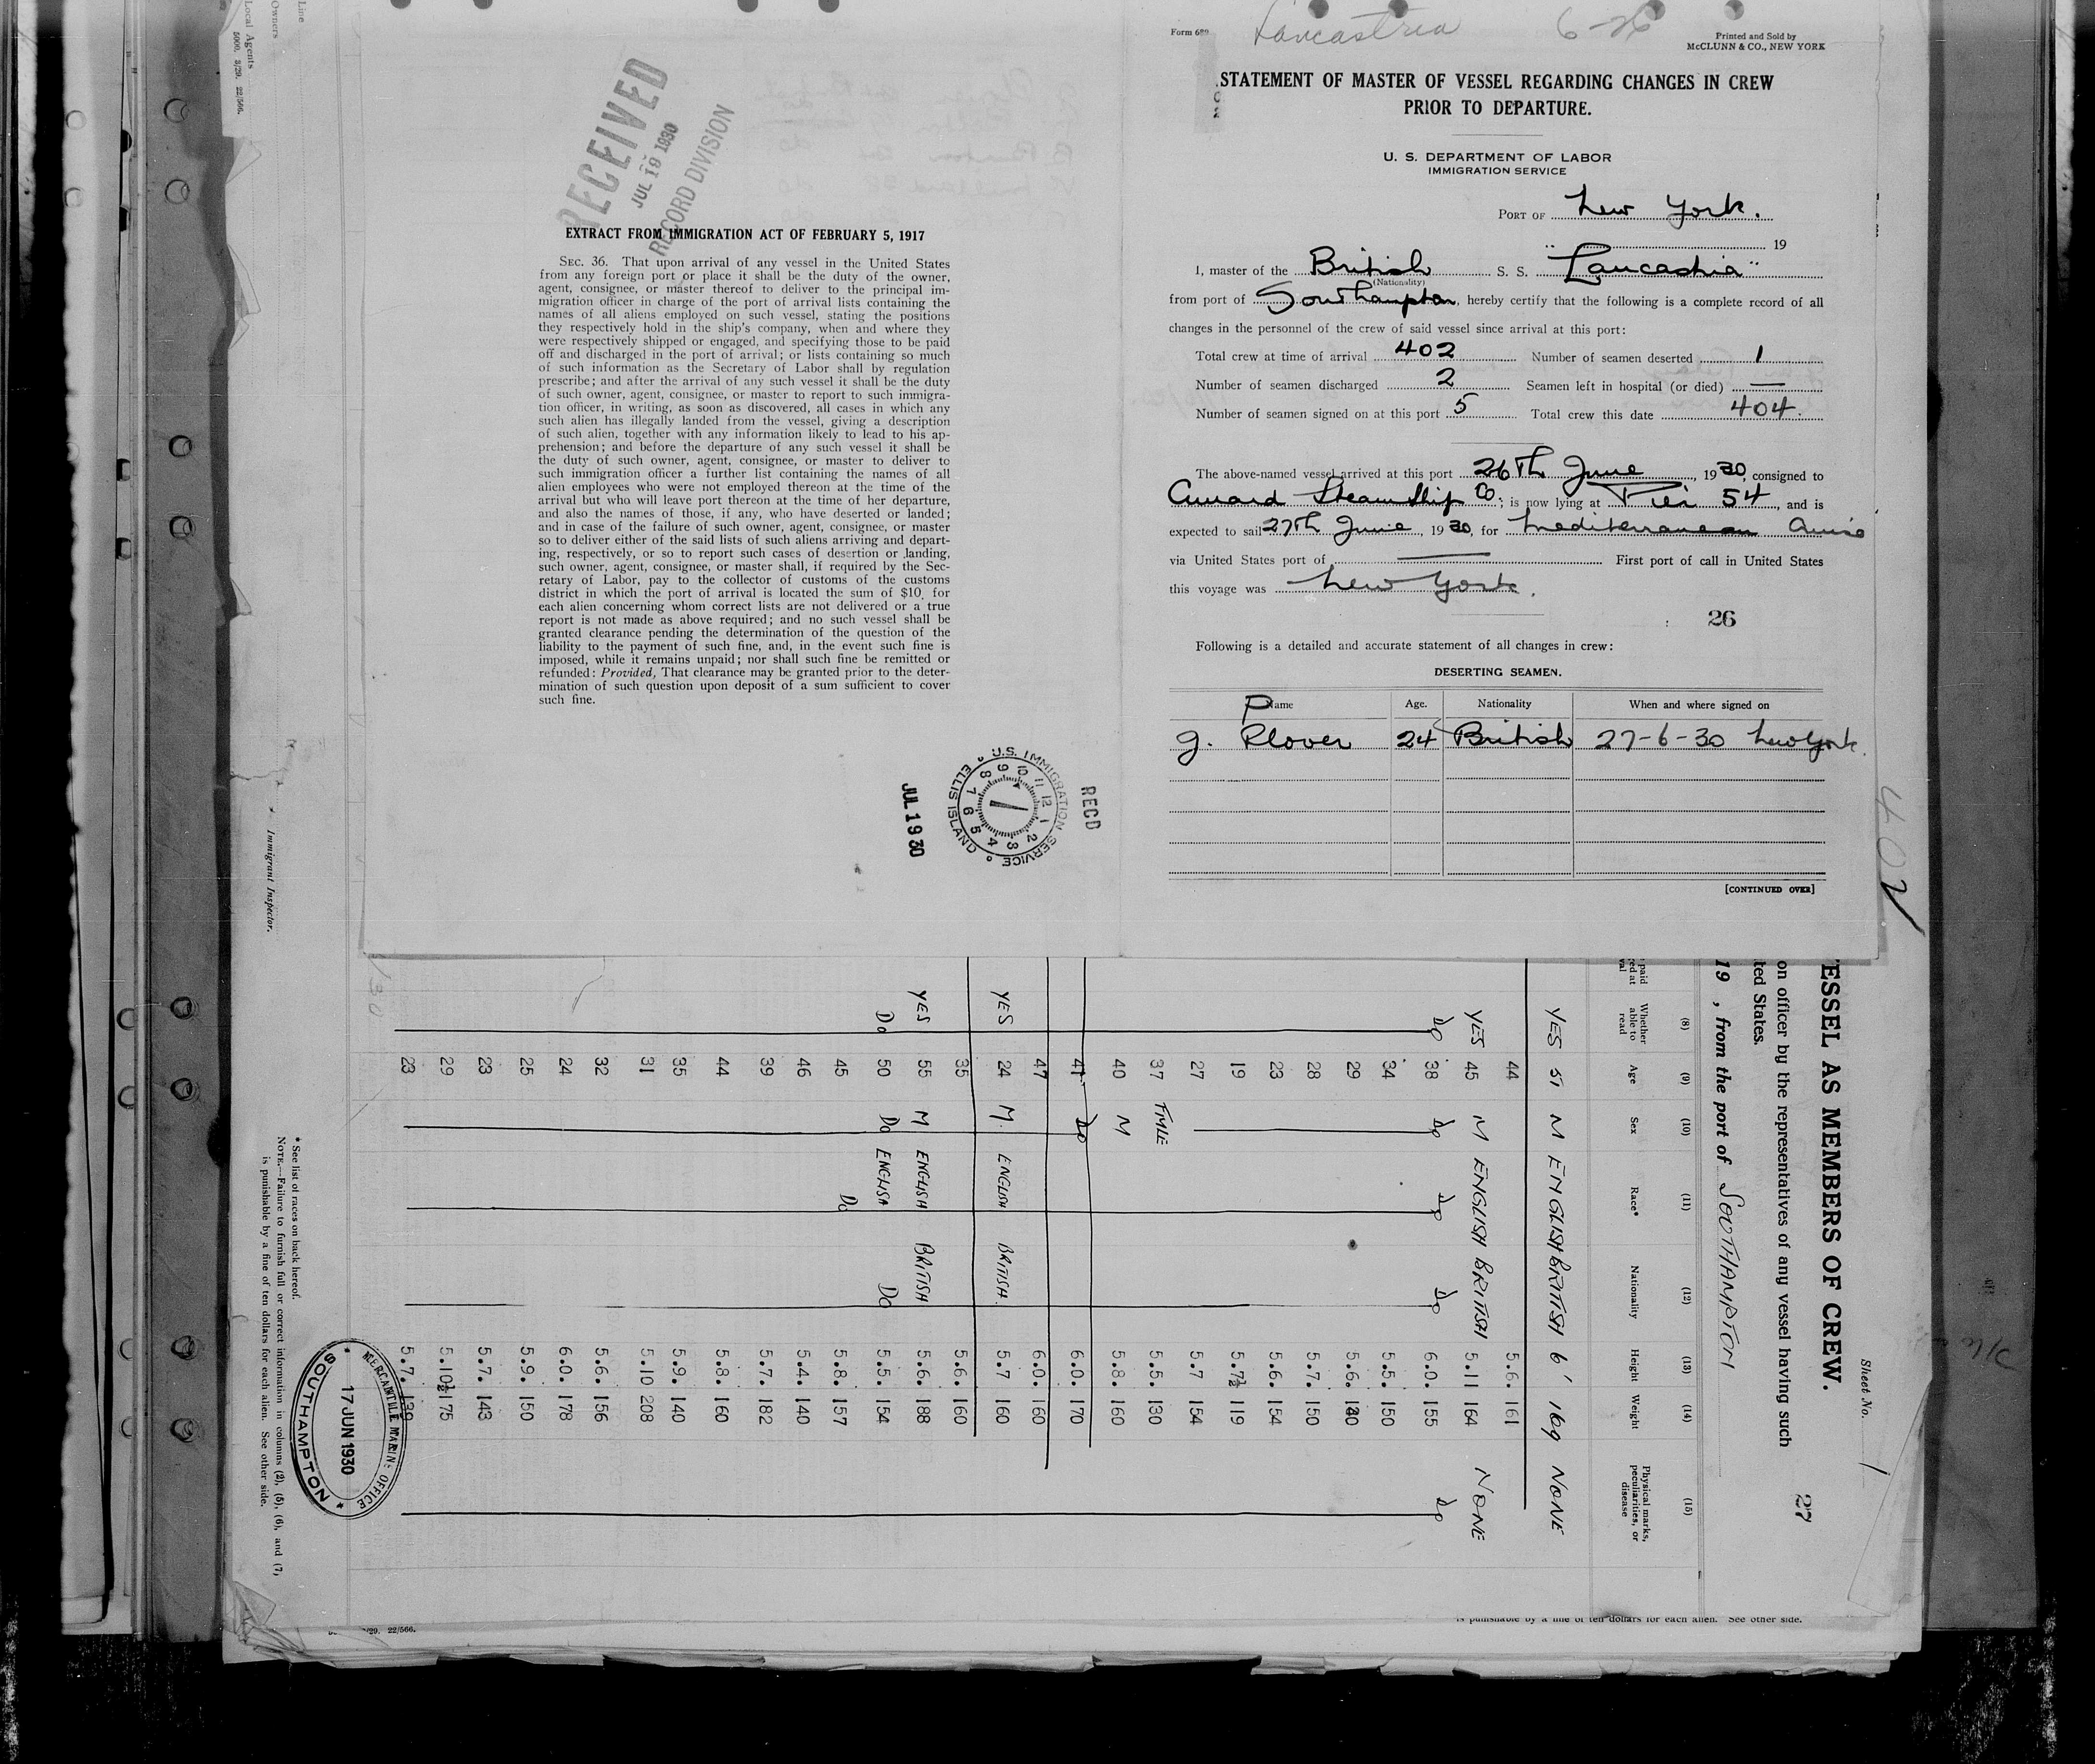 Line
Owners
Local Agents
5000. 3/29. 22/566.
Immigrant Inspector.
RECEIVED
JUL 19 1930
RECORD DIVISION
EXTRACT FROM IMMIGRATION ACT OF FEBRUARY 5, 1917
SEC. 36. That upon arrival of any vessel in the United States
from any foreign port or place it shall be the duty of the owner,
agent, consignee, or master thereof to deliver to the principal im-
migration officer in charge of the port of arrival lists containing the
names of all aliens employed on such vessel, stating the positions
they respectively hold in the ship's company, when and where they
were respectively shipped or engaged, and specifying those to be paid
off and discharged in the port of arrival; or lists containing so much
of such information as the Secretary of Labor shall by regulation
prescribe; and after the arrival of any such vessel it shall be the duty
of such owner, agent, consignee, or master to report to such immigra-
tion officer, in writing, as soon as discovered, all cases in which any
such alien has illegally landed from the vessel, giving a description
of such alien, together with any information likely to lead to his ap-
prehension; and before the departure of any such vessel it shall be
the duty of such owner, agent, consignee, or master to deliver to
such immigration officer a further list containing the names of all
alien employees who were not employed thereon at the time of the
arrival but who will leave port thereon at the time of her departure,
and also the names of those, if any, who have deserted or landed;
and in case of the failure of such owner, agent, consignee, or master
so to deliver either of the said lists of such aliens arriving and depart-
ing, respectively, or so to report such cases of desertion or landing,
such owner, agent, consignee, or master shall, if required by the Sec-
retary of Labor, pay to the collector of customs of the customs
district in which the port of arrival is located the sum of $10 for
each alien concerning whom correct lists are not delivered or a true
report is not made as above required; and no such vessel shall be
granted clearance pending the determination of the question of the
liability to the payment of such fine, and, in the event such fine is
imposed, while it remains unpaid; nor shall such fine be remitted or
refunded: Provided, That clearance may be granted prior to the deter-
mination of such question upon deposit of a sum sufficient to cover
such fine.
JUL 19 30
U.S. IMMIGRATION SERVICE
ELLIS ISLAND
RECD
Form 689
Lancastria 6-26
Printed and Sold by
McCLUNN & CO., NEW YORK
STATEMENT OF MASTER OF VESSEL REGARDING CHANGES IN CREW
PRIOR TO DEPARTURE.
U. S. DEPARTMENT OF LABOR
IMMIGRATION SERVICE
PORT OF New York.
19
I, master of the British S. S. "Lancastria"
(Nationality)
from port of Southampton, hereby certify that the following is a complete record of all
changes in the personnel of the crew of said vessel since arrival at this port:
Total crew at time of arrival 402 Number of seamen deserted 1
Number of seamen discharged 2 Seamen left in hospital (or died) —
Number of seamen signed on at this port 5 Total crew this date 404.
The above-named vessel arrived at this port 26Th June, 1930, consigned to
Cunard Steam Ship Co; is now lying at Pier 54, and is
expected to sail 27Th June, 1930, for Mediterranean Cruise
via United States port of — First port of call in United States
this voyage was New York.
26
Following is a detailed and accurate statement of all changes in crew:
DESERTING SEAMEN.
Name Age. Nationality When and where signed on
P
J. Plover 24 British 27-6-30 New York.
[CONTINUED OVER]
402
Sheet No. 1
27
ESSEL AS MEMBERS OF CREW.
on officer by the representatives of any vessel having such
ted States.
19 , from the port of SOUTHAMPTON
(8) (9) (10) (11) (12) (13) (14) (15)
Whether able to read Age Sex Race* Nationality Height Weight Physical marks, peculiarities, or disease
YES 51 M ENGLISH BRITISH 6' 169 NONE
44 5.6. 161
YES 45 M ENGLISH BRITISH 5.11 164 NONE
Do 38 Do Do Do 6.0. 155 Do
34 5.5. 150
29 5.6. 130
28 5.7. 150
23 5.6. 154
19 5.7½ 119
27 5.7 154
37 FMLE 5.5. 130
40 M 5.8. 160
41 Do 6.0. 170
47 6.0. 160
YES 24 M. ENGLISH BRITISH. 5.7 160
35 5.6. 160
YES 55 M ENGLISH BRITISH 5.6. 188
Do 50 Do ENGLISH Do 5.5. 154
45 Do 5.8. 157
46 5.4. 140
39 5.7. 182
44 5.8. 160
35 5.9. 140
31 5.10 208
32 5.6. 156
24 6.0. 178
25 5.9. 150
23 5.7. 143
29 5.10½ 175
23 5.7. 139
MERCANTILE MARINE OFFICE
17 JUN 1930
SOUTHAMPTON
* See list of races on back hereof.
NOTE.—Failure to furnish full or correct information in columns (2), (5), (6), and (7),
is punishable by a fine of ten dollars for each alien. See other side.
is punishable by a fine of ten dollars for each alien. See other side.
/29. 22/566.